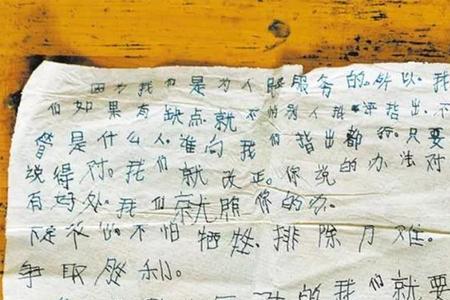 因为我们是为人服务的.所以.我
们如果有缺点.就不怕别人批评指出.不
管是什么人.谁向我们指出都行.只要
说得对。我们就改正。你说的办法对
有好处.我们就照你的办.
决心.不怕牺牲.排除万难。
争取胜利。
的我们就要